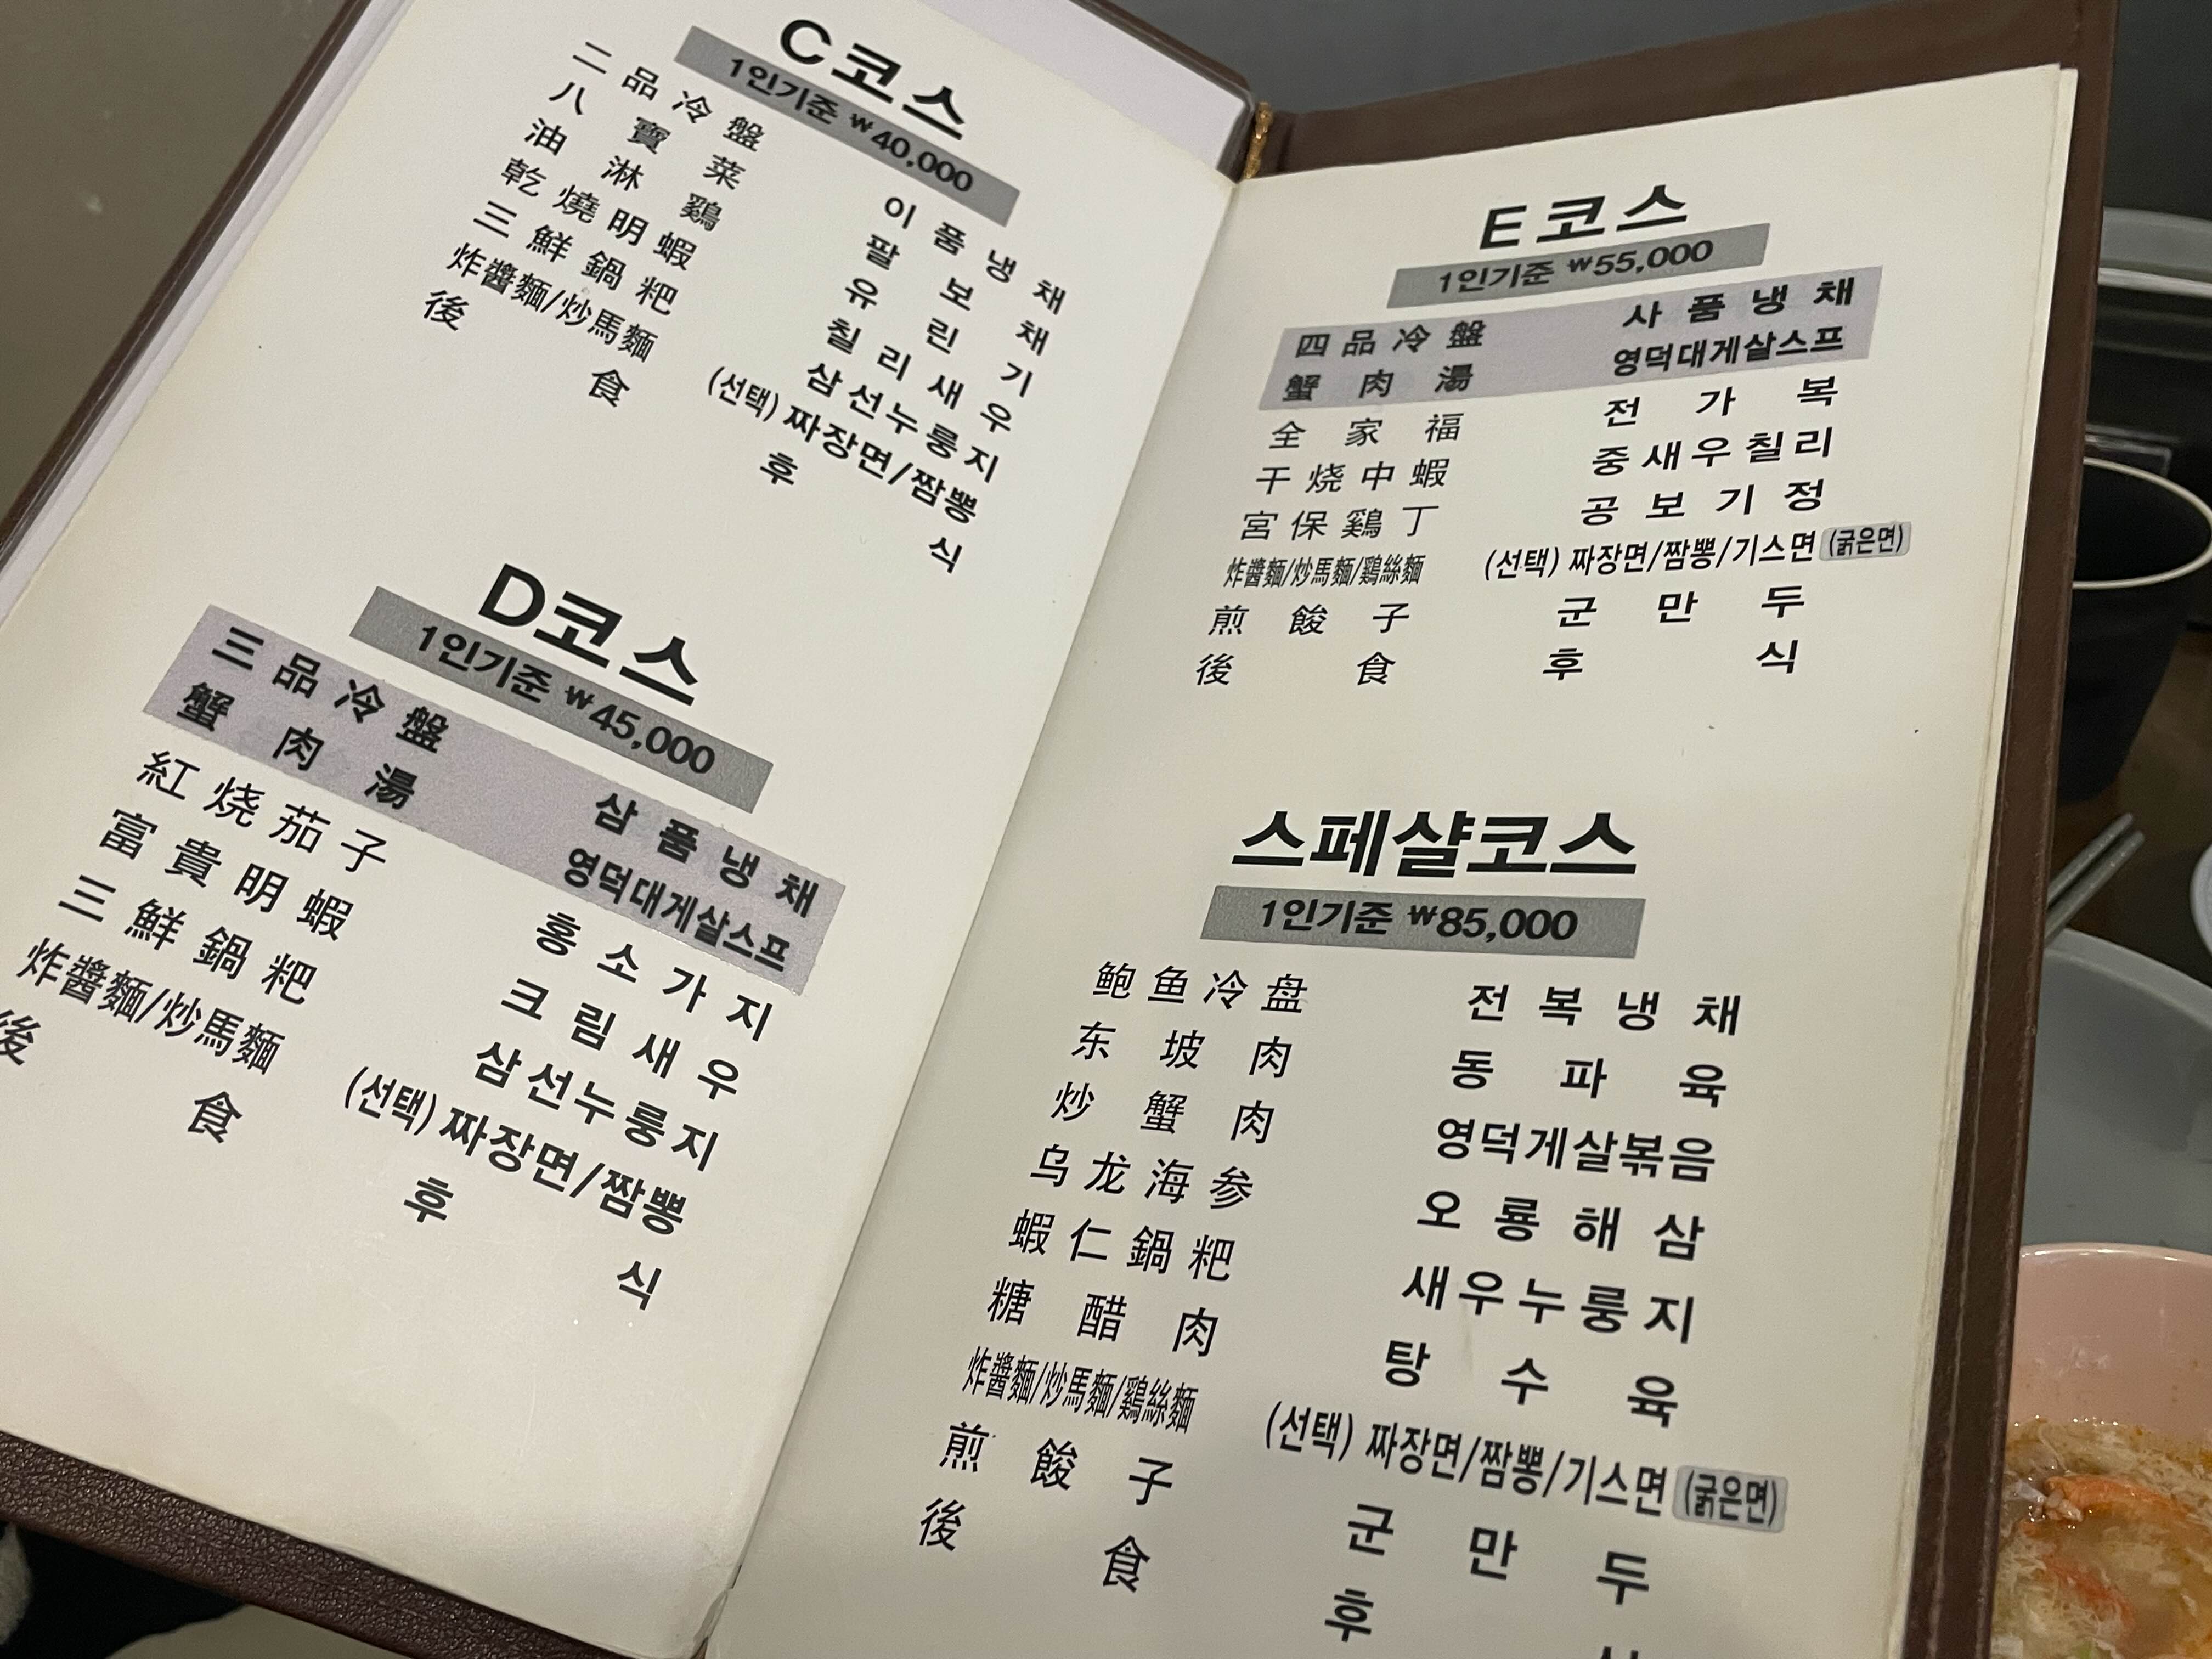 C코스
1인기준 ₩40,000
二品冷盤 이품냉채
八寶菜 팔보채
油淋鷄 유린기
乾燒明蝦 칠리새우
三鮮鍋粑 삼선누룽지
炸醬麵/炒馬麵 (선택) 짜장면/짬뽕
後食 후식
D코스
1인기준 ₩45,000
三品冷盤 삼품냉채
蟹肉湯 영덕대게살스프
紅烧茄子 홍소가지
富貴明蝦 크림새우
三鮮鍋粑 삼선누룽지
炸醬麵/炒馬麵 (선택) 짜장면/짬뽕
後食 후식
E코스
1인기준 ₩55,000
四品冷盤 사품냉채
蟹肉湯 영덕대게살스프
全家福 전가복
干烧中蝦 중새우칠리
宮保鷄丁 공보기정
炸醬麵/炒馬麵/鷄絲麵 (선택) 짜장면/짬뽕/기스면 (굵은면)
煎餕子 군만두
後食 후식
스페샬코스
1인기준 ₩85,000
鲍鱼冷盘 전복냉채
东坡肉 동파육
炒蟹肉 영덕게살볶음
乌龙海参 오룡해삼
蝦仁鍋粑 새우누룽지
糖醋肉 탕수육
炸醬麵/炒馬麵/鷄絲麵 (선택) 짜장면/짬뽕/기스면 (굵은면)
煎餕子 군만두
後食 후